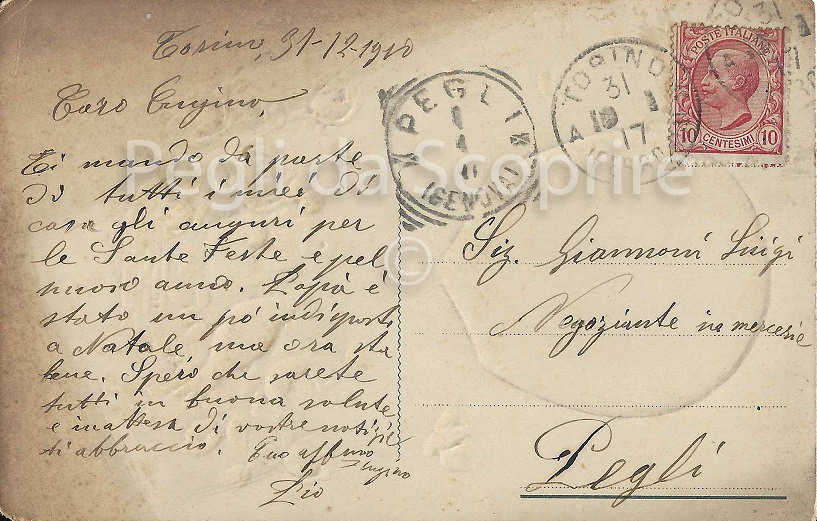 Torino, 31-12-1910
Caro Cugino,
Ti mando da parte
di tutti i miei di
casa gli auguri per
le Sante Feste e pel
nuovo anno. Papà è
stato un pó indisposto
a Natale, ma ora sta
bene. Spero che sarete
tutti in buona salute
e in attesa di vostre notizie
ti abbraccio. Tuo affmo
cugino
Pio
PEGLI
(GENOVA)
TORINO
31
17
POSTE ITALIANE
10 CENTESIMI 10
Sig. Giannoni Luigi
Negoziante in mercerie
Pegli
Pegli da Scoprire
©